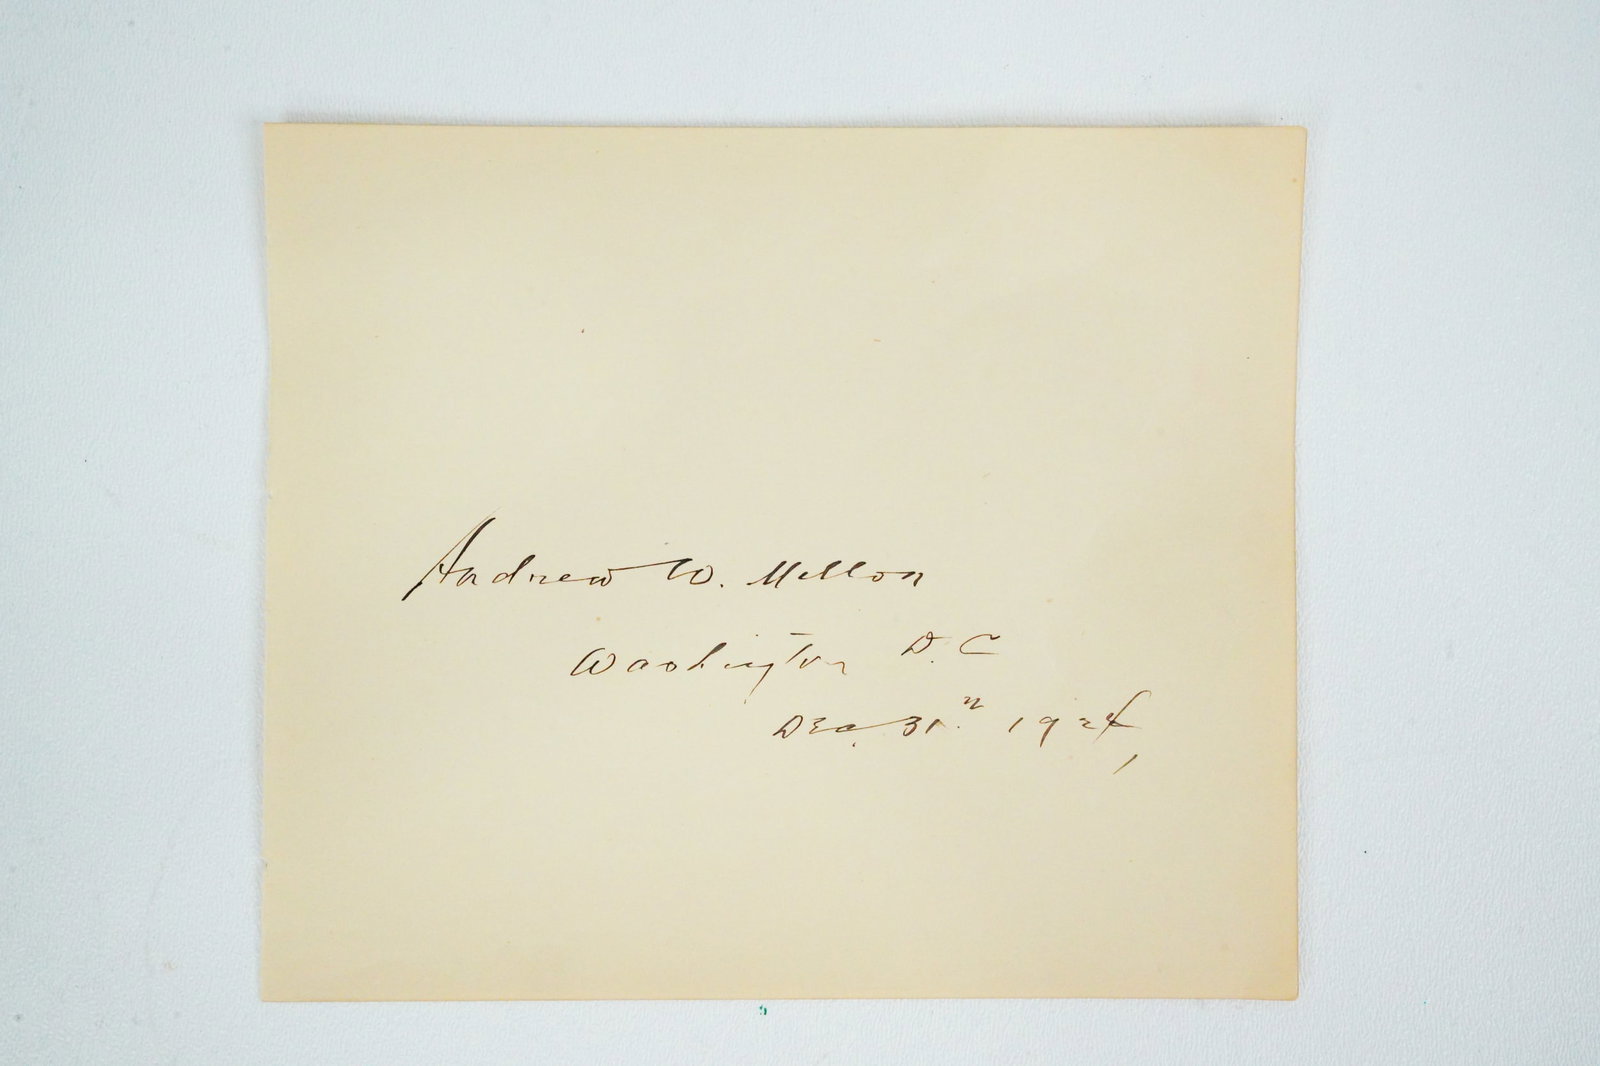 Andrew W. Mellon
Washington D.C
Dec. 31. 1924,